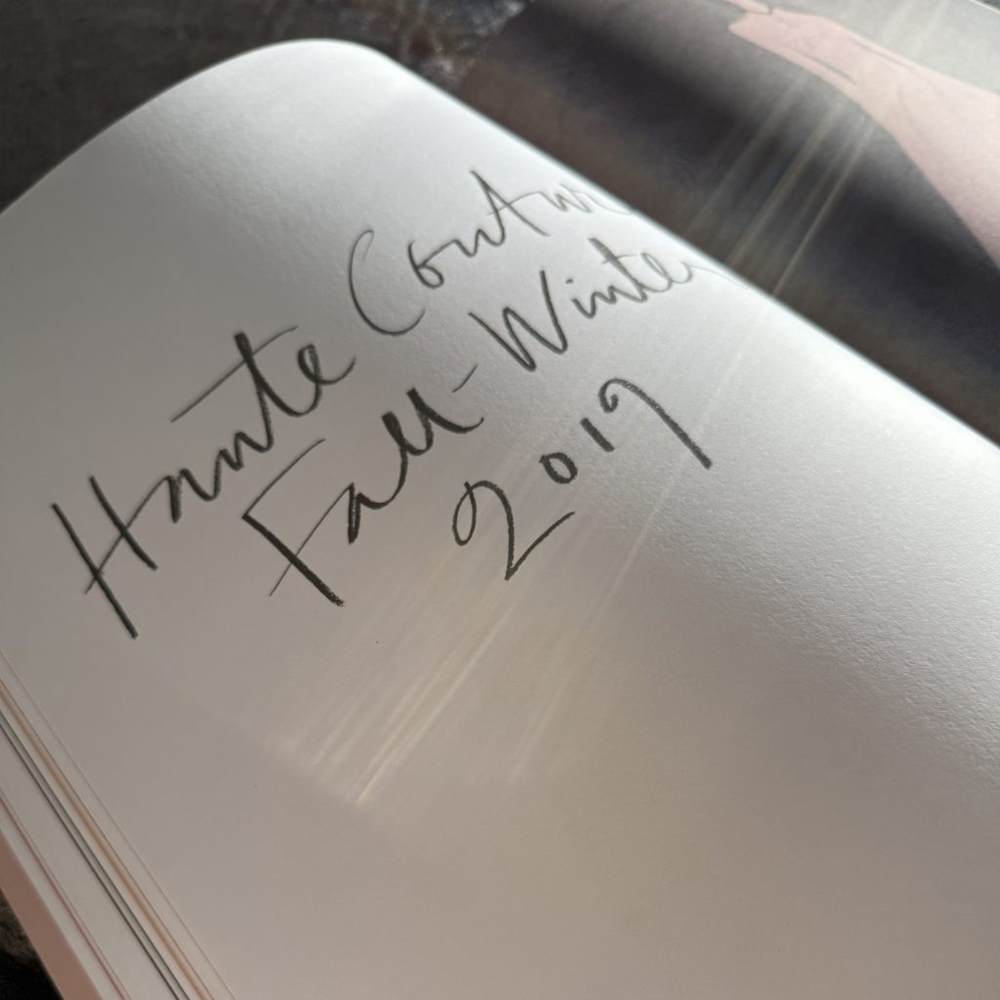 Haute Couture
Fall-Winter
2019